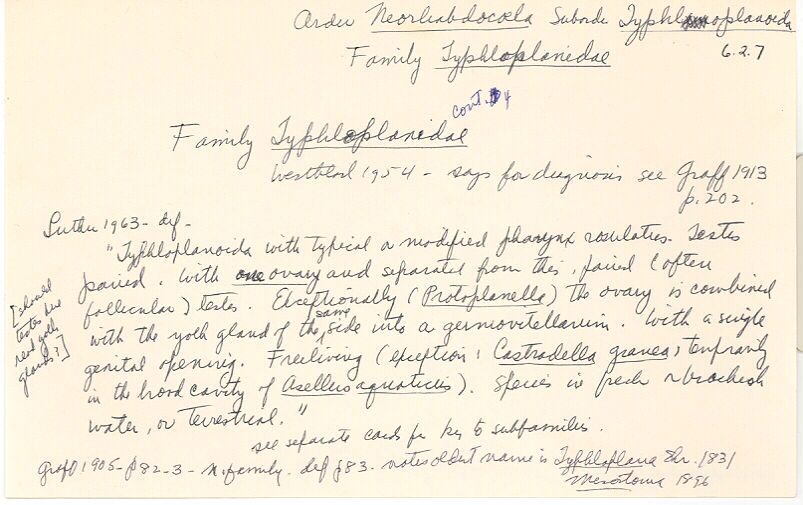 Order Neorhabdocoela Suborder Typhloplanoida
Family Typhloplanidae 6.2.7
cont. 4
Family Typhloplanidae
Westblad 1954 - says for diagnosis see Graff 1913
p. 202.
Luther 1963 - def -
"Typhloplanoida with typical or modified pharynx rosulatus. Testes
paired. With one ovary and separated from this, paired (often
follicular) testes. Exceptionally (Protoplanella) the ovary is combined
with the yolk gland of the same side into a germovitellarium. With a single
genital opening. Freeliving (exception: Castradella granea, temporarily
in the brood cavity of Asellus aquaticus). Species in fresh or brackish
water, or terrestrial."
[should
testes here
read yolk
glands?]
see separate cards for key to subfamilies.
Graff 1905 - p 82-3 - n. family. def p 83. notes oldest name is Typhloplana Ehr. 1831
Mesostoma 1896